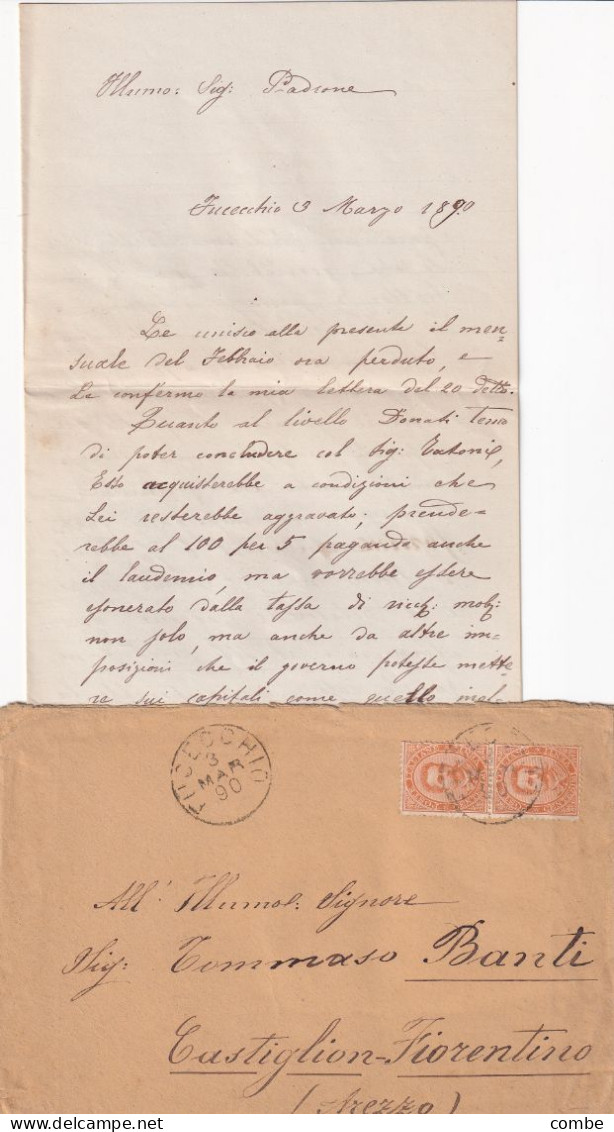 Illumo: Sig: Padrone
Fucecchio 3 Marzo 1890
Le unisco alla presente il men=
suale del Febbraio ora perduto, e
Le confermo la mia lettera del 20 detto.
Quanto al livello Donati temo
di poter concludere col Sig:
Esso acquisterebbe a condizioni che
Lei resterebbe aggravato; prende=
rebbe al 100 per 5 pagando anche
il laudemio, ma vorrebbe essere
esonerato dalla tassa di ricch: mob:
non solo, ma anche da altre im=
posizioni che il governo potesse mette
re sui capitali come quello
FUCECCHIO
3
MAR
90
All' Illumo: Signore
Sig: Tommaso Banti
Castiglion-Fiorentino
(Arezzo)
delcampe.net
combe